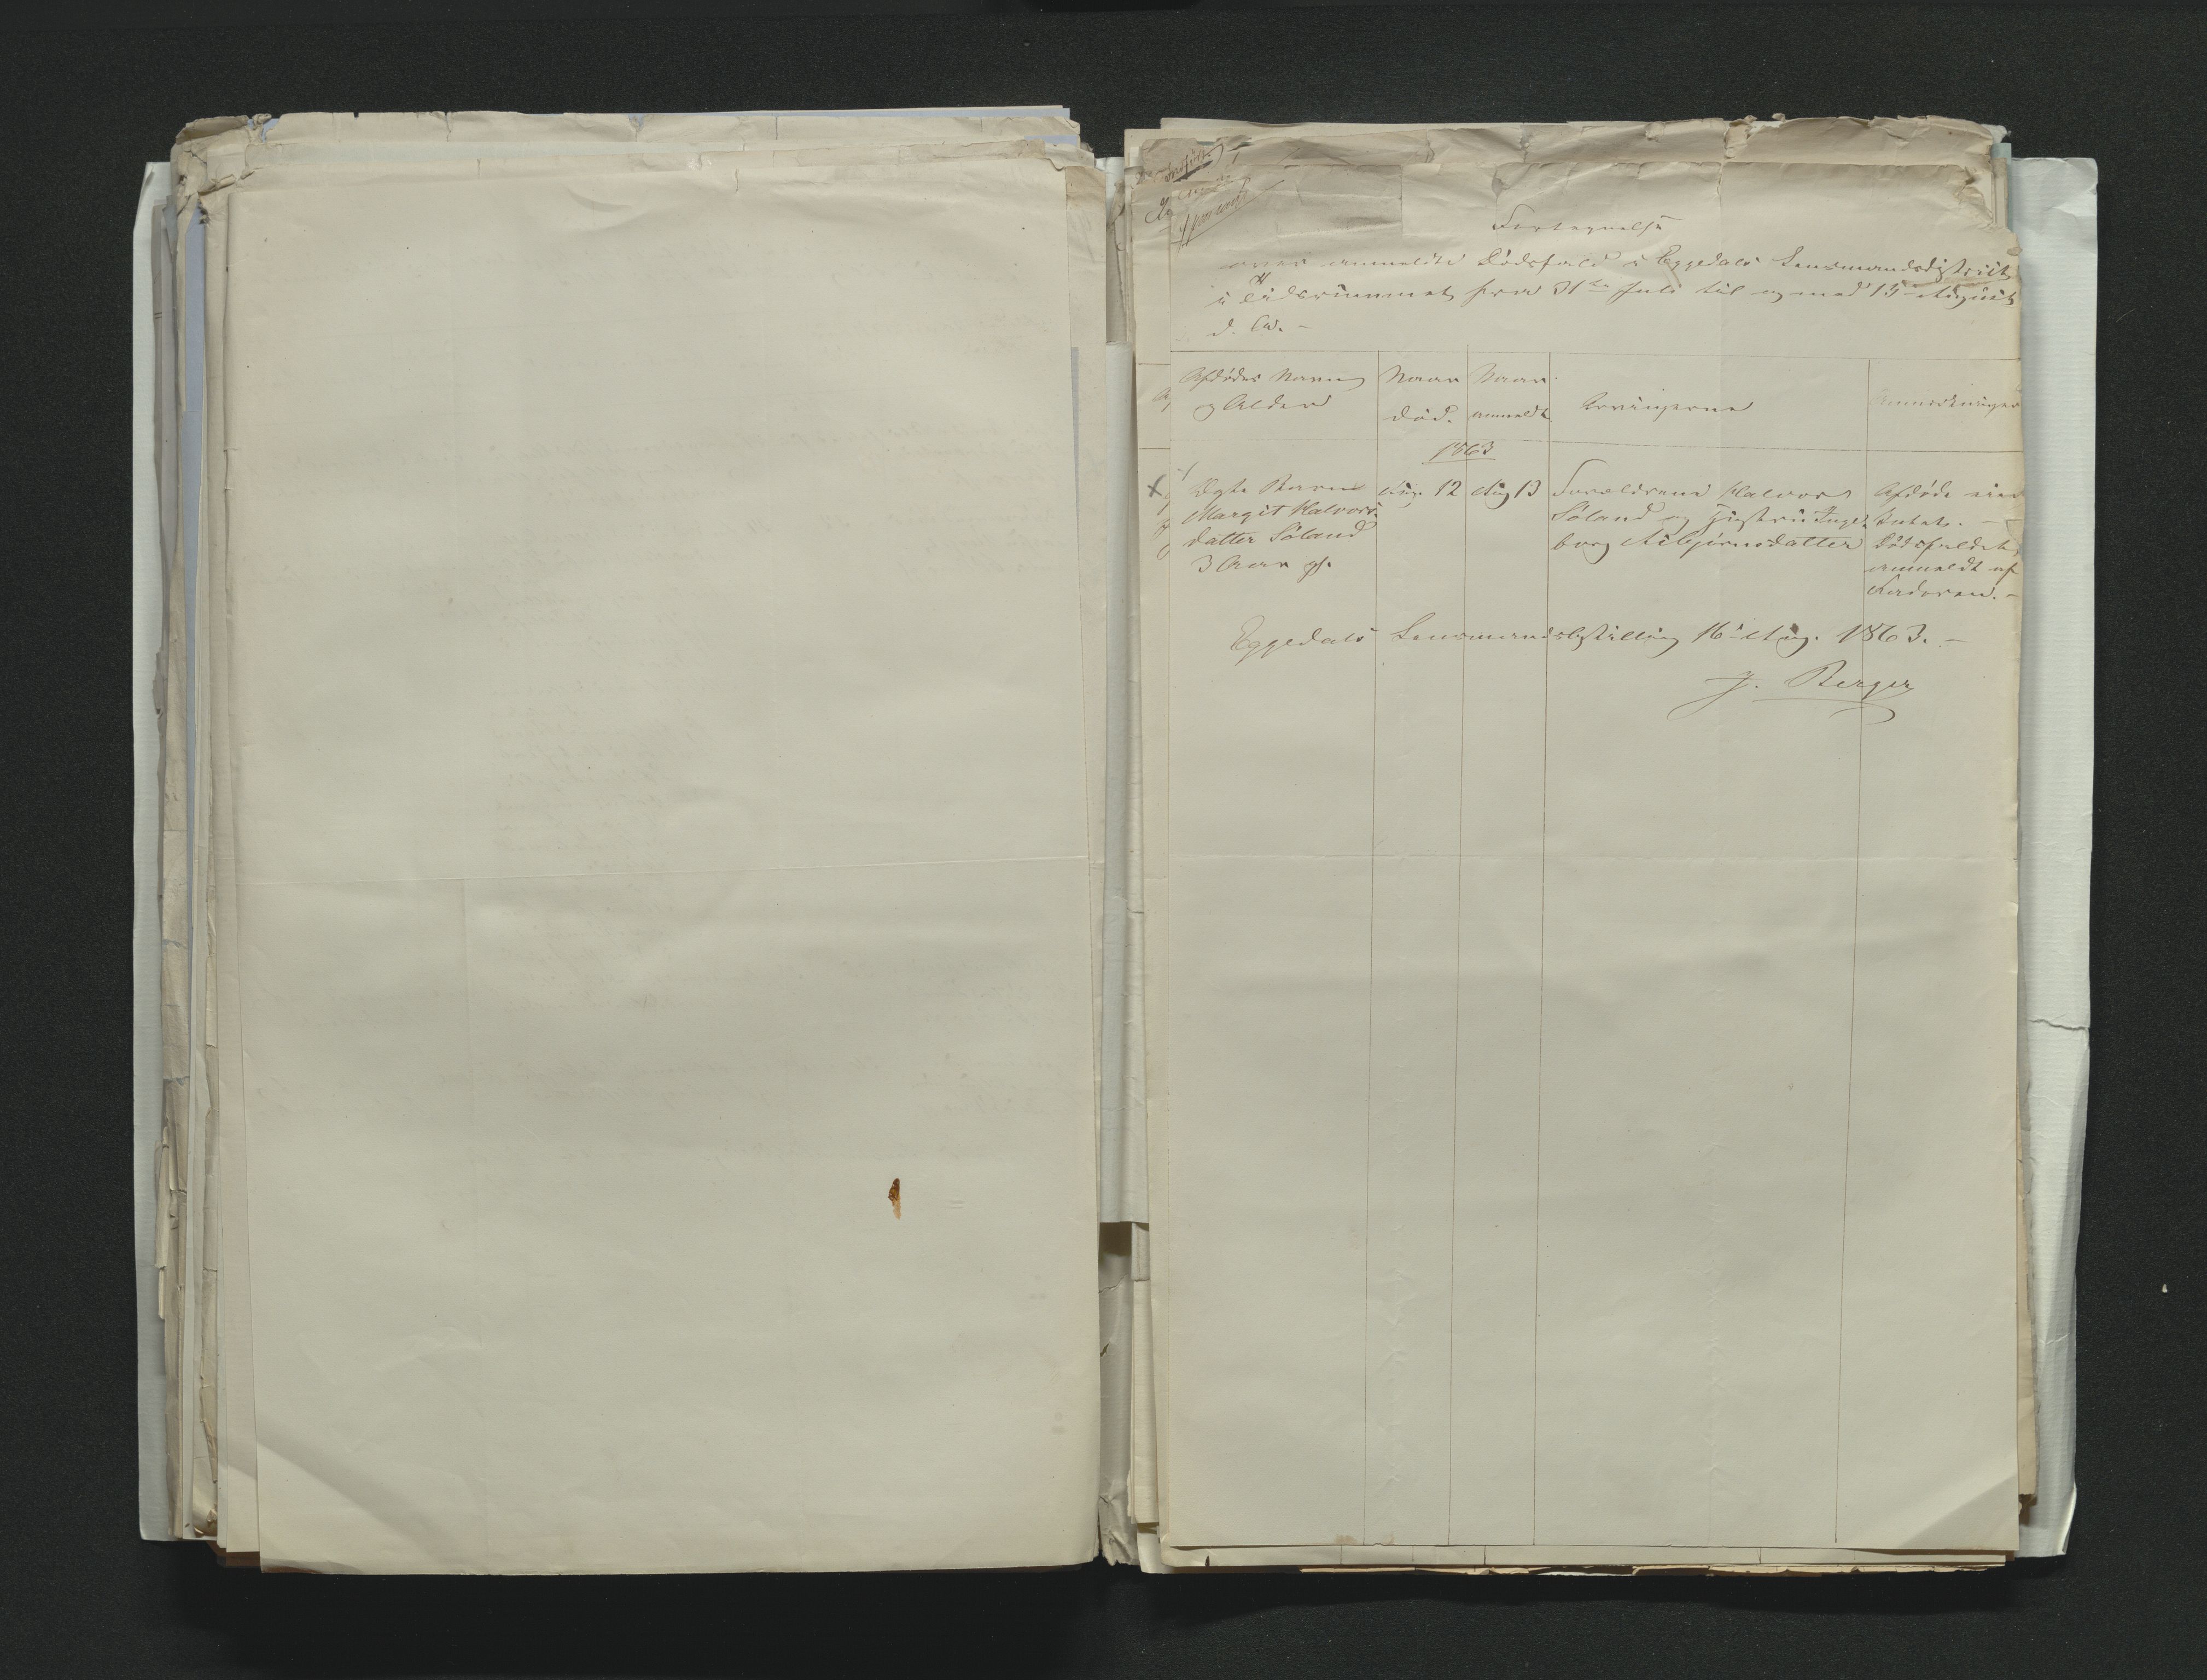 Fortegnelse
over anmeldte Dødsfald i Eggedals Lensmandsdistrict
i Tidsrummet fra 31te Juli til og med 15de August
d. A. –
Afdødes Navn og Alder
Naar død.
Naar anmeldt.
Arvingerne
Anmærkninger
1863
1
Ægte Barn
Margit Halvors-
datter Søland
3 Aar gl.
Aug. 12
Aug 13
Forældrene Halvor
Søland og Hustru Inge-
borg Asbjørnsdatter
Afdøde eied
Intet. –
Dødsfaldet
anmeldt af
Faderen. –
Eggedals Lensmandsbestilling 16de Aug. 1863. –
J. Berger